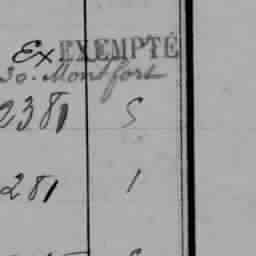 Ex EXEMPTÉ
30. Montfort
2381 5
281 1